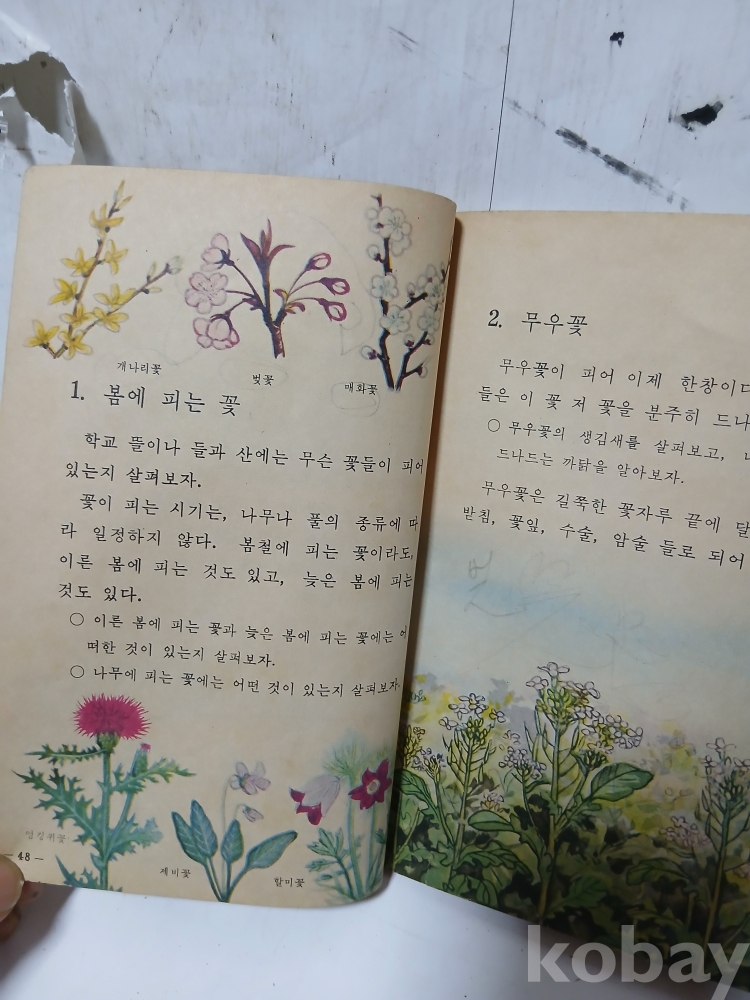 개나리꽃
벚꽃
매화꽃
1. 봄에 피는 꽃
학교 뜰이나 들과 산에는 무슨 꽃들이 피어
있는지 살펴보자.
꽃이 피는 시기는, 나무나 풀의 종류에 따
라 일정하지 않다. 봄철에 피는 꽃이라도,
이른 봄에 피는 것도 있고, 늦은 봄에 피는
것도 있다.
○ 이른 봄에 피는 꽃과 늦은 봄에 피는 꽃에는 어
떠한 것이 있는지 살펴보자.
○ 나무에 피는 꽃에는 어떤 것이 있는지 살펴보자.
엉겅퀴꽃
제비꽃
할미꽃
— 48 —
2. 무우꽃
무우꽃이 피어 이제 한창이다
들은 이 꽃 저 꽃을 분주히 드나
○ 무우꽃의 생김새를 살펴보고,
드나드는 까닭을 알아보자.
무우꽃은 길쭉한 꽃자루 끝에 달
받침, 꽃잎, 수술, 암술 들로 되어
kobay